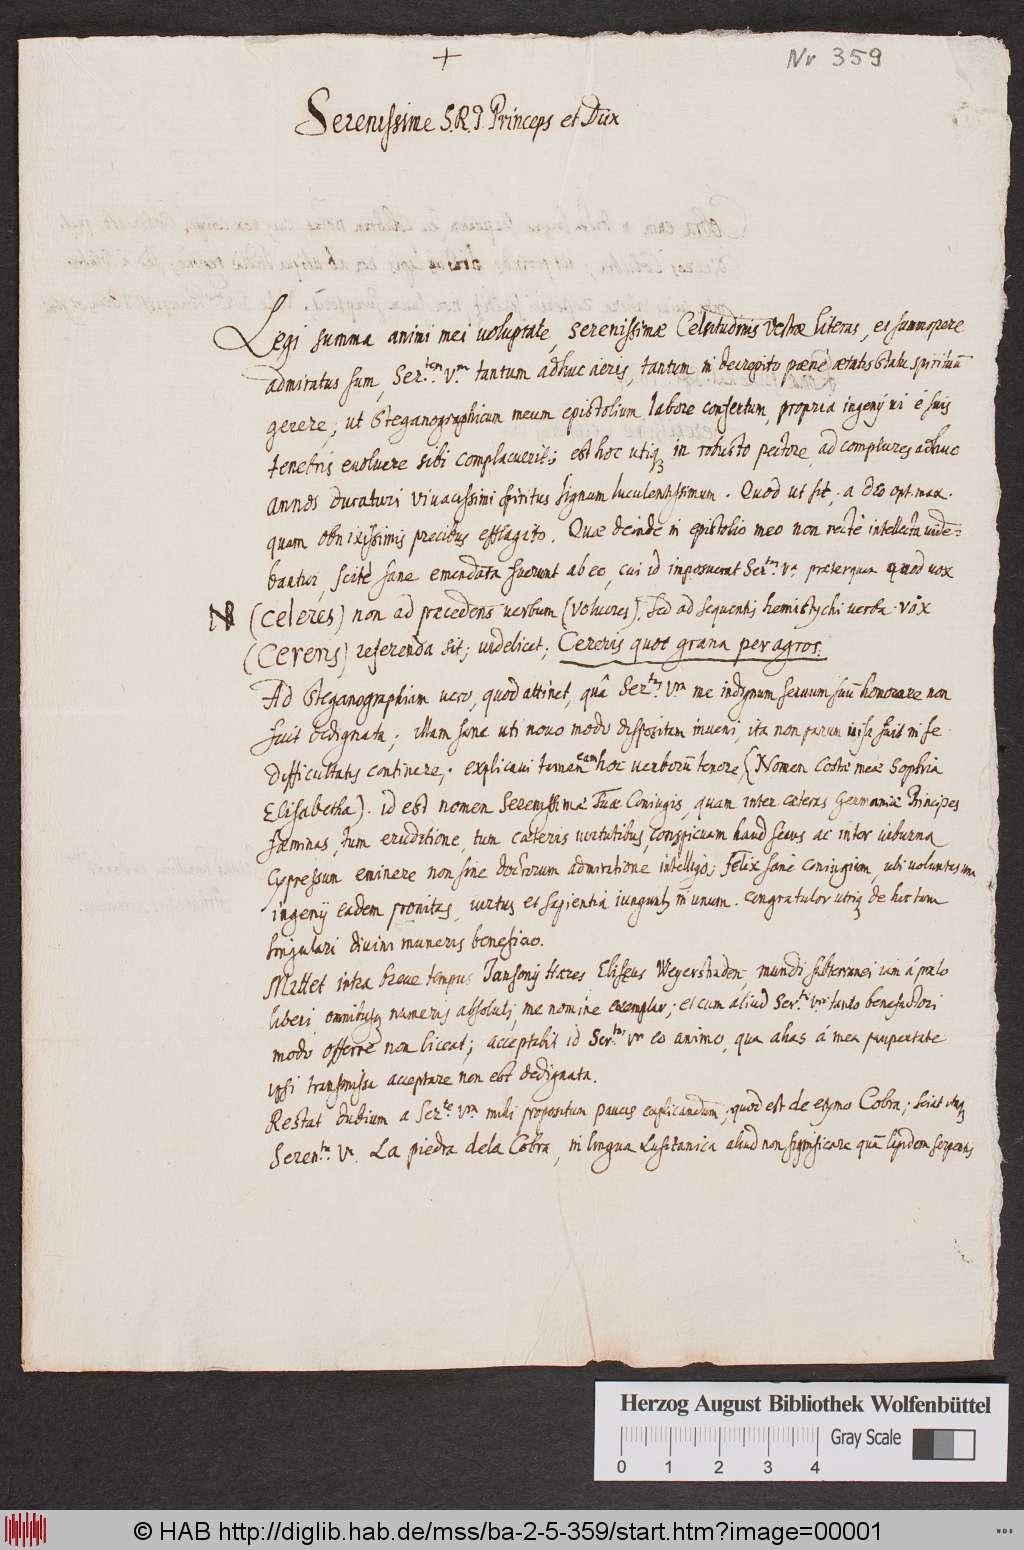 +
Nr 359
Serenissime S.R.I. Princeps et Dux
Legi summa animi mei voluptate, serenissimæ Celsitudinis Vestræ literas, et summopere
admiratus sum, Ser.tem V.m tantum adhuc aeris, tantum in decrepito pæne ætatis statu spirituũ
gerere; ut steganographicum meum epistolium labore confertum, propria ingenij vi è suis
tenebris evoluere sibi complacuerit; est hoc utiq3 in robusto pectore, ad complures adhuc
annos duraturi vivacissimi spiritus signum luculentissimum. Quod ut sit, a deo opt. max.
quam obnixissimis precibus efflagito. Quæ deinde in epistolio meo non rectè intellecta vide-
bantur, scitè sane emendata fuerunt ab eo, cui id imposuerat Ser.tas V.a præterquam quod vox
NB (Celeres) non ad præcedens verbum (Volucres), sed ad sequentis hemistychi verba vox
(Cereris) referenda sit; videlicet; Cereris quot grana per agros.
Ad Steganographiam vero, quod attinet, quâ Ser.tas V.ra me indignum servum suũ honorare non
fuit dedignata; illam sane uti novo modo dispositam inveni, ita non parum visa fuit in se
difficultatis continere; explicavi tamen eam hoc verborũ tenore, (Nomen Costæ meæ Sophia
Elisabetha). id est nomen Serenissimæ Tuæ Coniugis, quam inter cæteras Germaniæ Principes
fæminas, tum eruditione, tum cæteris virtutibus, conspicuam haud secus ac inter viburna
Cypressum eminere non sine doctorum admiratione intelligo; Felix sanè coniugium, ubi voluntas una
ingenij eadem pronitas, virtus et sapientia iungunt in unum. congratulor utriq3 de hoc tam
singulari divini muneris beneficio.
Mittet intra breve tempus Jansonij Hæres Eliseus Weyerstraden, mundi subterranei iam á prælo
liberi, omnibusq3 numeris absoluti, meo nomine exemplar; et cum aliud Ser.ti V.ræ tanto benefactori
modo offerre non liceat; acceptabit id Ser.tas V.ra eo animo, quo alias á mea paupertate
ipsi transmissa acceptare non est dedignata.
Restat dubium a Ser.te V.ra mihi propositum paucis explicandum; quod est de etymo Cobra; sciat itaq3
Seren.tas V.a La piedra dela Cobra, in lingua Lusitanica aliud non significare quã lapidem serpentis
Herzog August Bibliothek Wolfenbüttel
Gray Scale
0 1 2 3 4
© HAB http://diglib.hab.de/mss/ba-2-5-359/start.htm?image=00001